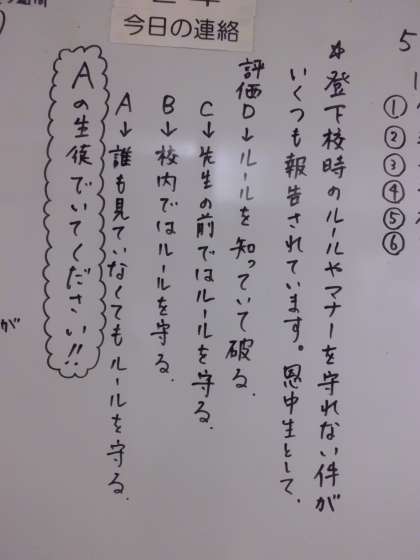 今日の連絡
☆登下校時のルールやマナーを守れない件が
いくつも報告されています。恩中生として、
評価D→ルールを知っていて破る.
C→先生の前ではルールを守る.
B→校内ではルールを守る.
A→誰も見ていなくてもルールを守る.
Aの生徒でいてください!!
5
①
②
③
④
⑤
⑥
が